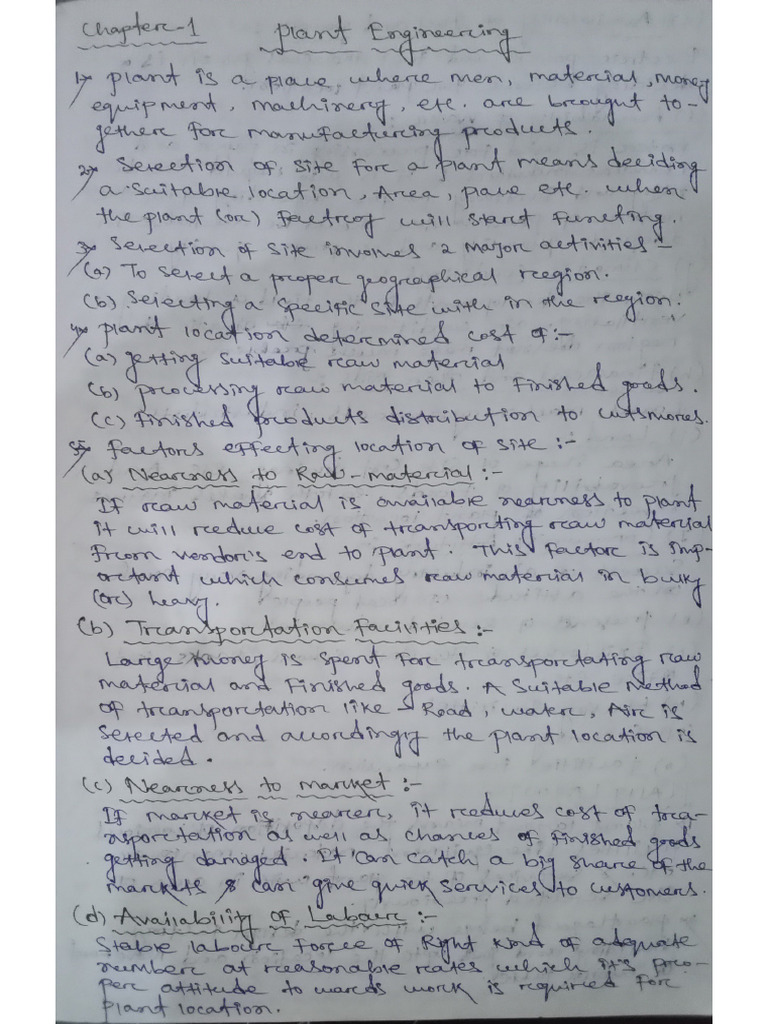 Chapter-1 Plant Engineering
1) Plant is a place, where men, material, money
equipment, machinery, etc. are brought to-
gether for manufacturing products.
2) Selection of site for a plant means deciding
a suitable location, Area, place etc. when
the plant (or) factroy will start functing.
3) Selection of site involmes 2 major activities :-
(a) To select a proper geographical region.
(b) Selecting a specific site with in the region.
4) Plant location determined cost of :-
(a) getting suitable raw material
(b) processing raw material to finished goods.
(c) finished products distribution to cutsmores.
5) factors effecting location of site :-
(a) Nearness to Raw-material :-
If raw material is available nearness to plant
it will reduce cost of transporting raw material
from vendor's end to plant. This factor is imp-
ortant which consumes raw material in bulky
(or) heavy.
(b) Transportation Facilities :-
Large money is spent for transportating raw
material and finished goods. A suitable method
of transportation like - Road, water, Air is
selected and accordingly the plant location is
decided.
(c) Nearness to market :-
If market is nearer, it reduces cost of tra-
nsportation as well as chances of finished goods
getting damaged. It can catch a big share of the
markets & can give quick services to customers.
(d) Availability of Labour :-
Stable labour force of Right kind of adequate
number at reasonable rates which it's pro-
per attitude to wards work is required for
plant location.